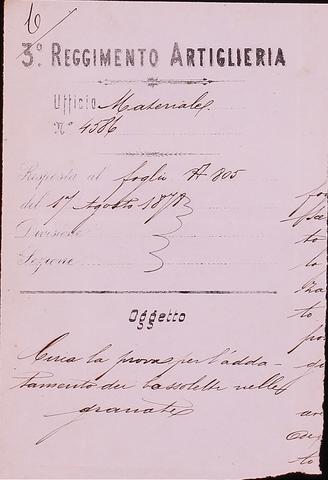 6
3º. REGGIMENTO ARTIGLIERIA
Ufficio Materiale
Nº 4586
Risposta al foglio A 805
del 17 Agosto 1878
Divisione
Sezione
Oggetto
Circa la prova per l'adda-
tamento dei cassoletti nelle
granate